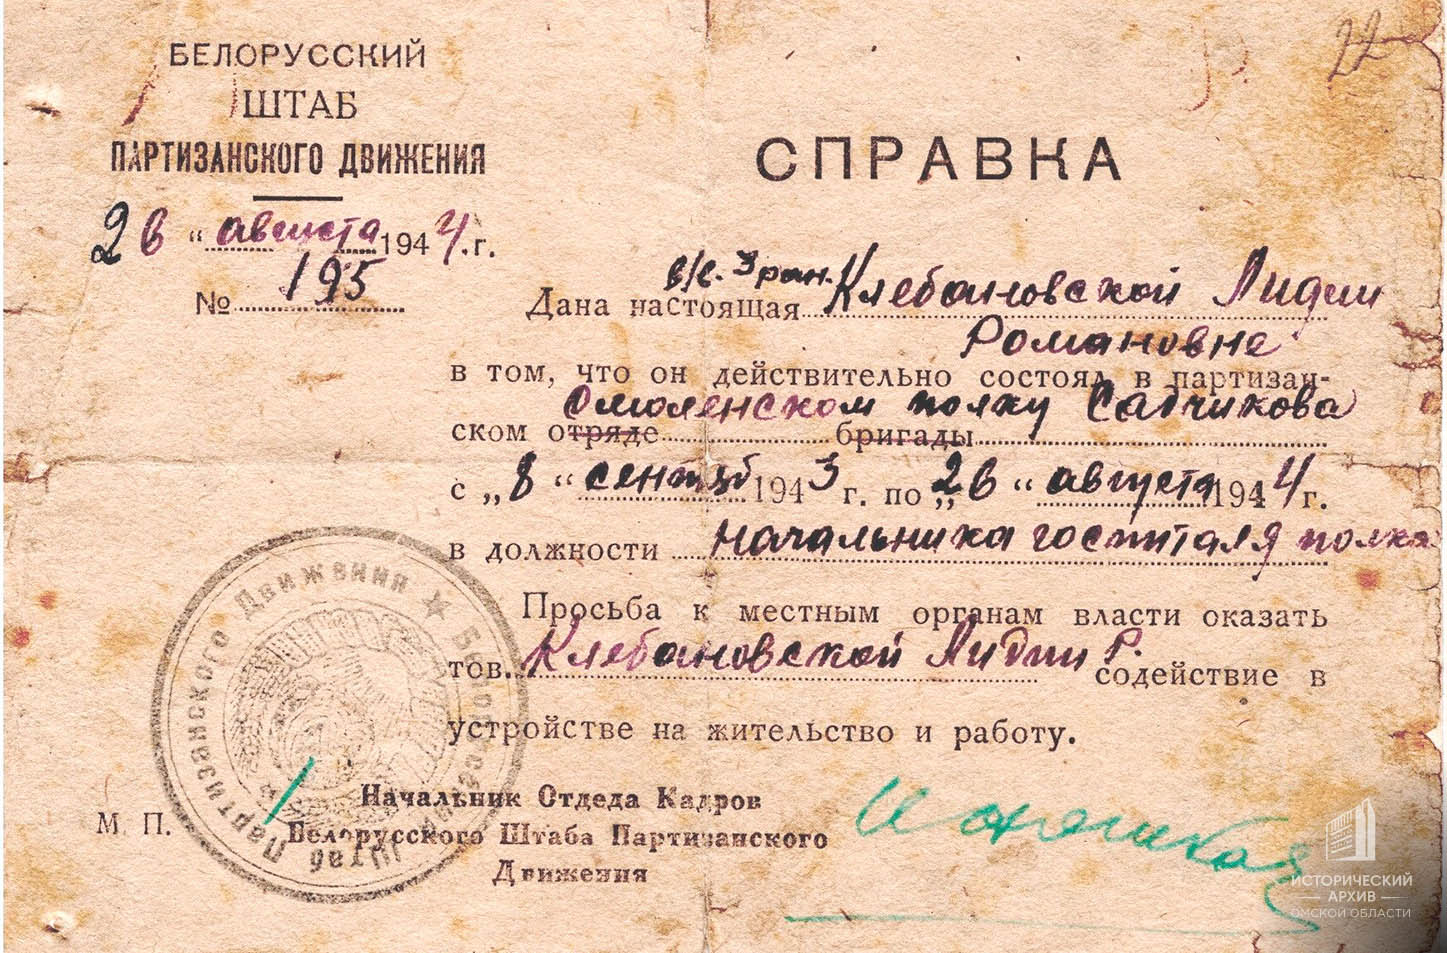 22
БЕЛОРУССКИЙ
ШТАБ
ПАРТИЗАНСКОГО ДВИЖЕНИЯ
26 " августа 1944.г.
№ 195
СПРАВКА
в/в. 3 ран.
Дана настоящая Клебановской Лидии
Романовне
в том, что он действительно состоял в партизан-
Смоленском полку Садчикова
ском отряде бригады
с „8 " сентяб 1943 г. по „26 " августа 1944 г.
в должности Начальника госпиталя полка
Просьба к местным органам власти оказать
тов. Клебановской Лидии Р. содействие в
устройстве на жительство и работу.
М. П.
Начальник Отдеда Кадров
Белорусского Штаба Партизанского
Движения
Белорусский Штаб Партизанского Движения
ИСТОРИЧЕСКИЙ
АРХИВ
ОМСКОЙ ОБЛАСТИ